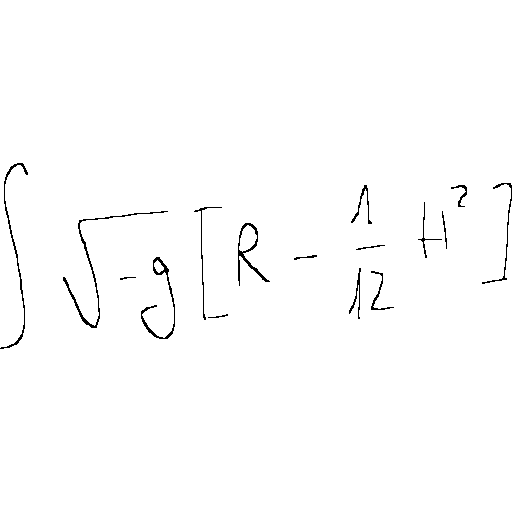 ∫ √-g [ R - 1/12 H² ]